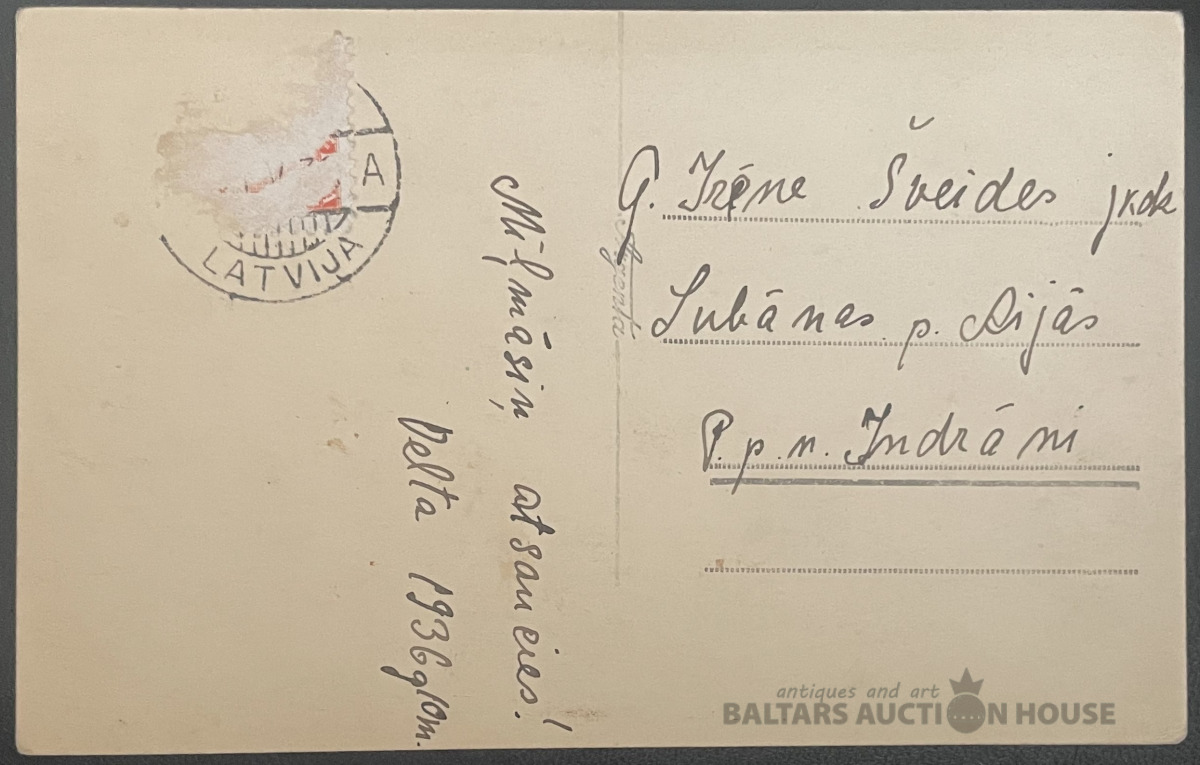 A
LATVIJA
Mīļmāsiņ atsaucies!
Velta 1936g
Agenta
G. Irēne Šveides jkdk
Lubānas p. Rijās
P. p. n. Indrāni
antiques and art
BALTARS AUCTION HOUSE